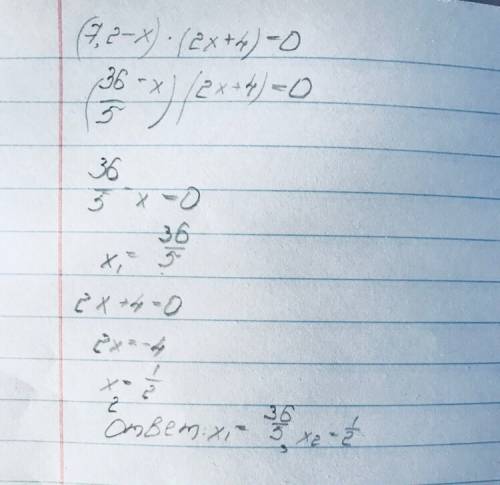 (7,2-x)·(2x+4)=0
(36/5-x)(2x+4)=0
36/5-x=0
x₁=36/5
2x+4=0
2x=-4
x₂=1/2
Ответ: x₁=36/5, x₂=1/2